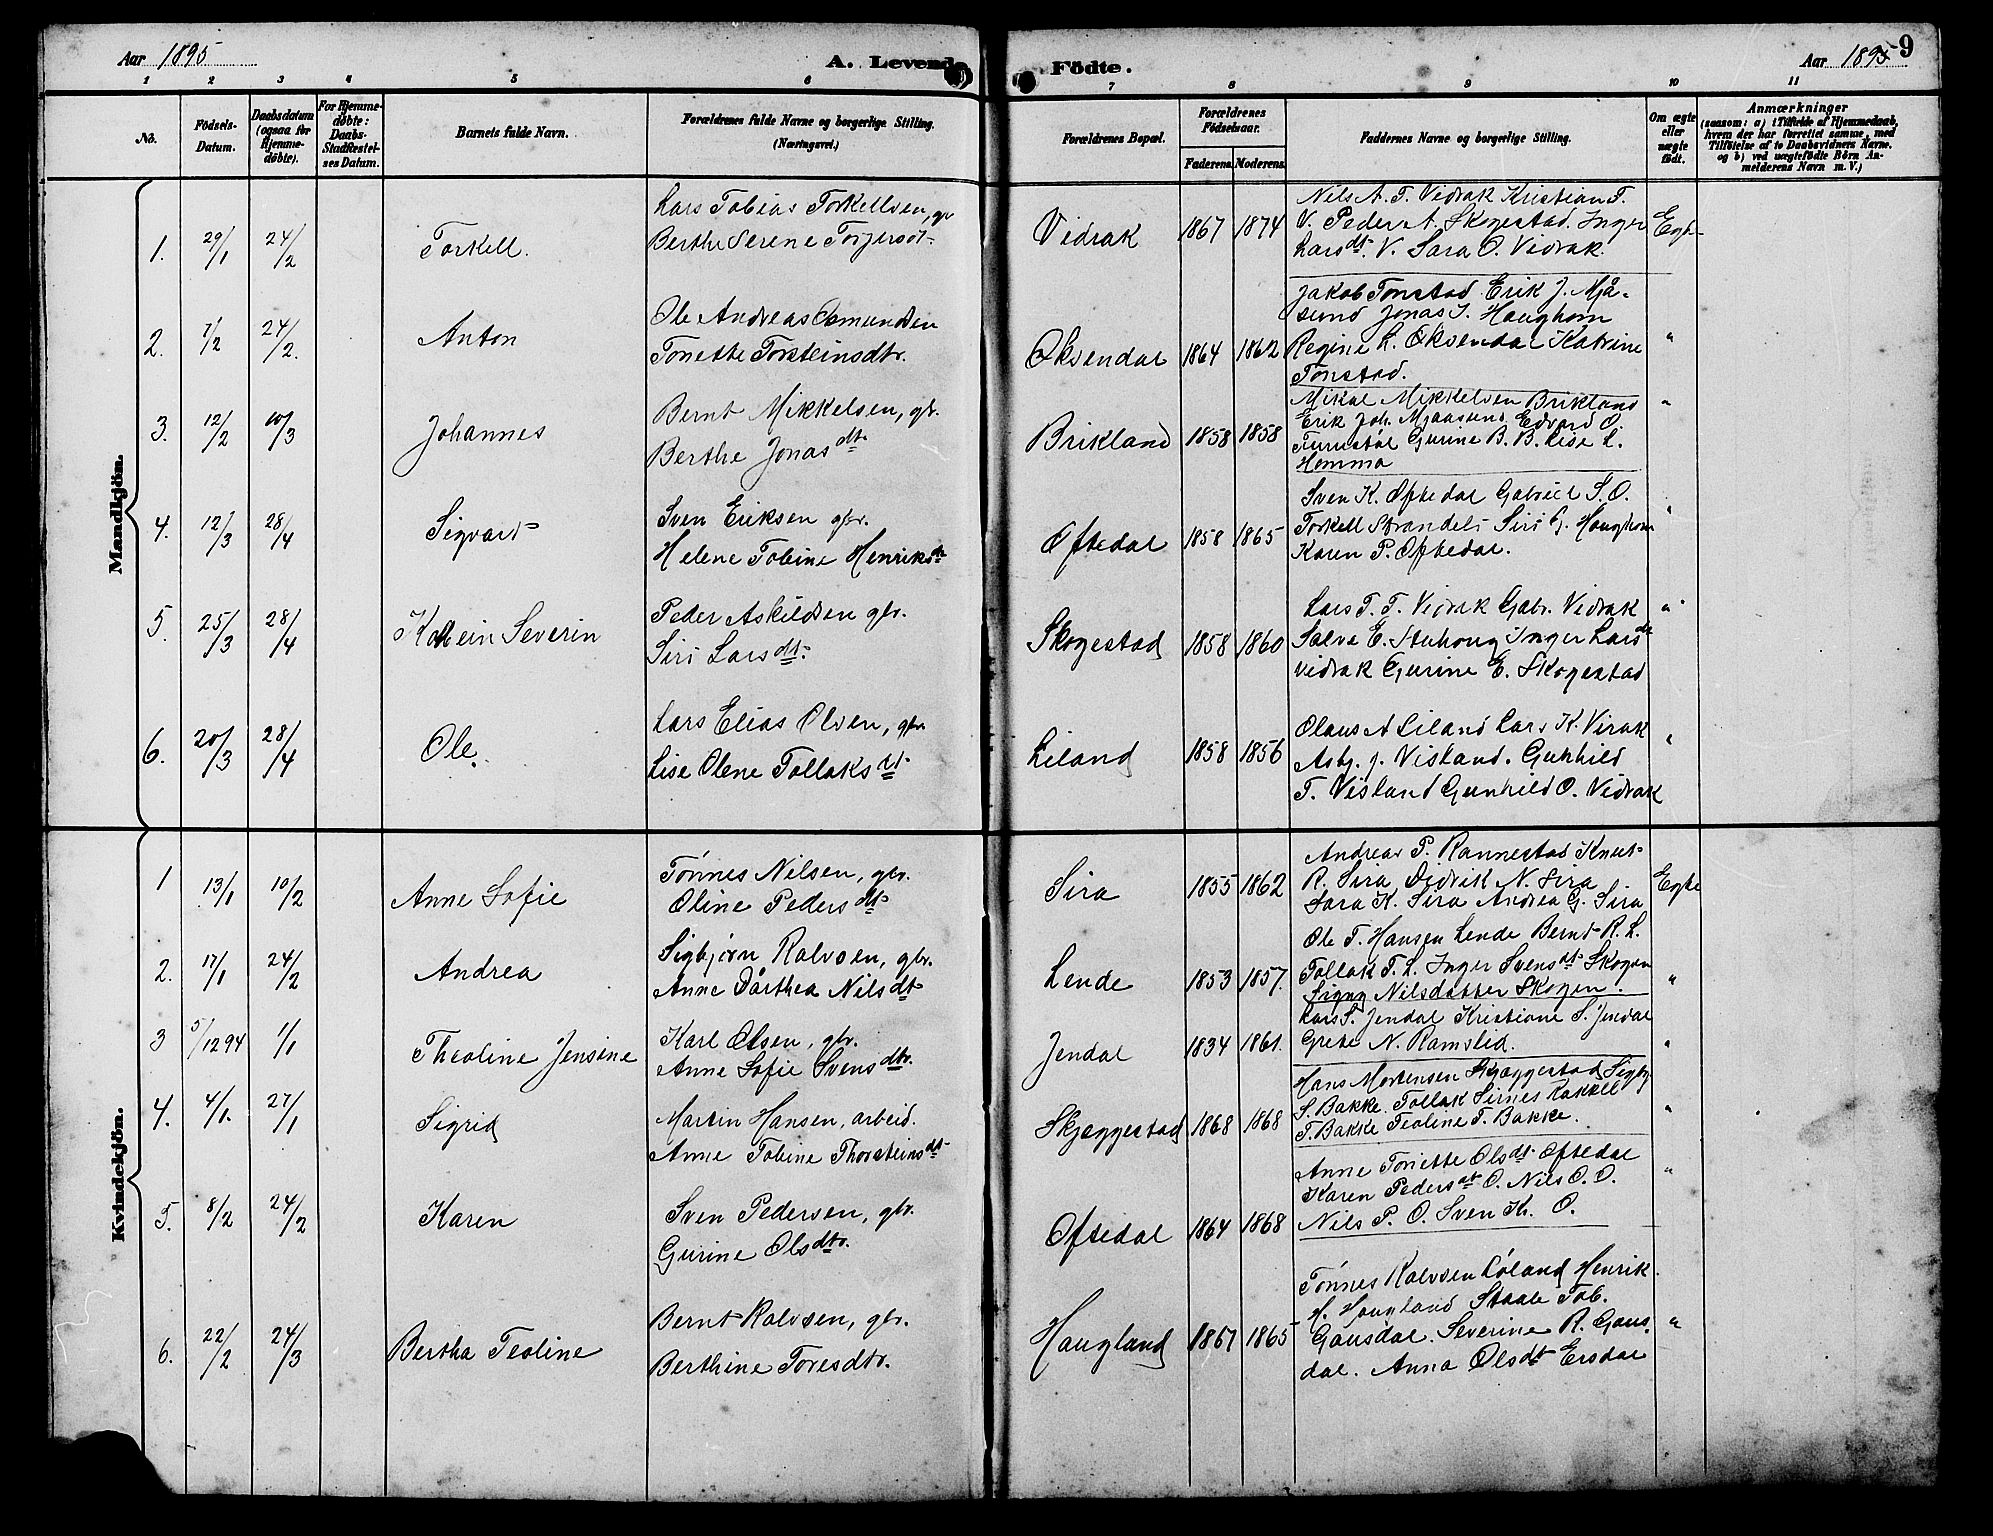 Aar 1895
A. Levende
Födte.
Aar 1895
9
1 2 3 4 5 6 7 8 9 10 11
No.
Födsels-Datum.
Daabsdatum (ogsaa for Hjemme-döbte).
For Hjemme-döbte: Daabs-Stadfæstel-ses Datum.
Barnets fulde Navn.
Forældrenes fulde Navne og borgerlige Stilling. (Næringsvei.)
Forældrenes Bopæl.
Forældrenes Födselsaar.
Faderens. Moderens.
Faddernes Navne og borgerlige Stilling.
Om ægte eller uægte födt.
Anmærkninger
(saasom: a) i Tilfælde af Hjemmedaab, hvem der har forrettet samme, med Tilföielse af to Daabsvidners Navne. og b) ved uægtefödte Börn An-melderens Navn m. V.)
Mandkjön.
1. 29/1 24/2 Torkell.
Lars Tobias Torkellsen, gbr
Berthe Serene Torjersdt
Vidrak 1867 1874
Nils A. T. Vidrak Kristian T.
V. Peder A. Skogestad. Inger
Larsdt. V. Sara O. Vidrak.
Egte
2. 7/2 24/2. Anton
Ole Andreas Osmundsen
Tonette Torsteinsdtr.
Øksendal 1864 1862
Jakob Tonstad Erik J. Mjå-
sund Jonas I. Haughom
Regine L. Øksendal Katrine
Tonstad.
"
3. 12/2 10/3 Johannes
Bernt Mikkelsen, gbr.
Berthe Jonasdt.
Brikland 1858 1858
Mikal Mikkelsen Brikland
Erik Joh. Mjaasund Edvard O.
Gurine B. B. Lise L.
Homma
"
4. 12/3 28/4 Sigvart
Sven Eriksen gbr.
Helene Tobine Henriksdt
Øftedal 1858 1865
Sven K. Øftedal Gabriel S. O.
Torkell Strandeli Siri G. Haughom
Karen P. Øftedal.
"
5. 25/3 28/4 Severin
Peder Askildsen gbr.
Siri Larsdt.
Skogestad 1858 1860
Lars T. T. Vidrak Gabr. Vidrak
Salve E. Stuhoug Inger Larsdt
Vidrak Gurine E. Skogestad
"
6. 20/3 28/4 Ole.
Lars Elias Olsen, gbr
Lise Olene Tollaksdt
Liland 1858 1856
Olaus A Liland Lars K. Virak
Asbj. J. Visland. Gunhild
T. Visland Gunhild O. Vidrak
"
Kvindekjön.
1 13/1 10/2 Anne Sofie
Tönnes Nilsen, gbr.
Oline Pedersdt
Sira 1855 1862
Andreas P. Rannestad Knut
R. Sira Didrik N. Sira
Sara K. Sira Andrea G. Sira
Egte
2. 17/1 24/2 Andrea
Sigbjørn Ralvsen, gbr.
Anne Dorthea Nilsdt
Lende 1853 1857.
Ole T. Hansen Lende Bernt R. L.
Tollak T. L. Inger Svensdt Skogen
Signy Nilsdatter Skogen.
"
3 5/12 94 1/1 Theoline Jensine
Karl Olsen, gbr.
Anne Sofie Svensdtr.
Jendal 1834 1861.
Lars S. Jendal Kristiane S. Jendal
Grete N. Ramslid.
"
4. 4/1. 27/1 Sigrid
Martin Hansen, arbeid.
Anne Tobine Thorsteinsdt
Skjæggestad 1868 1868
Hans Mortensen Skjæggestad Sigbj
S. Bakke. Tollak Sirnes Rakkel
T. Bakke Teoline T. Bakke.
"
5. 8/2 24/2 Karen
Sven Pedersen, gbr.
Gurine Olsdtr.
Øftedal 1864 1868
Anne Tonette Olsdt Øftedal
Karen Pedersdt O. Nils O. O.
Nils P. O. Sven K. O.
"
6. 22/2 24/3 Bertha Teoline
Bernt Ralvsen, gbr.
Berthine Toresdtr.
Haugland 1867 1865
Tönnes Ralvsen Löland Henrik
H. Haugland Staale Tob.
Gausdal. Severine R. Gaus-
dal. Anna Olsdt Ersdal
"